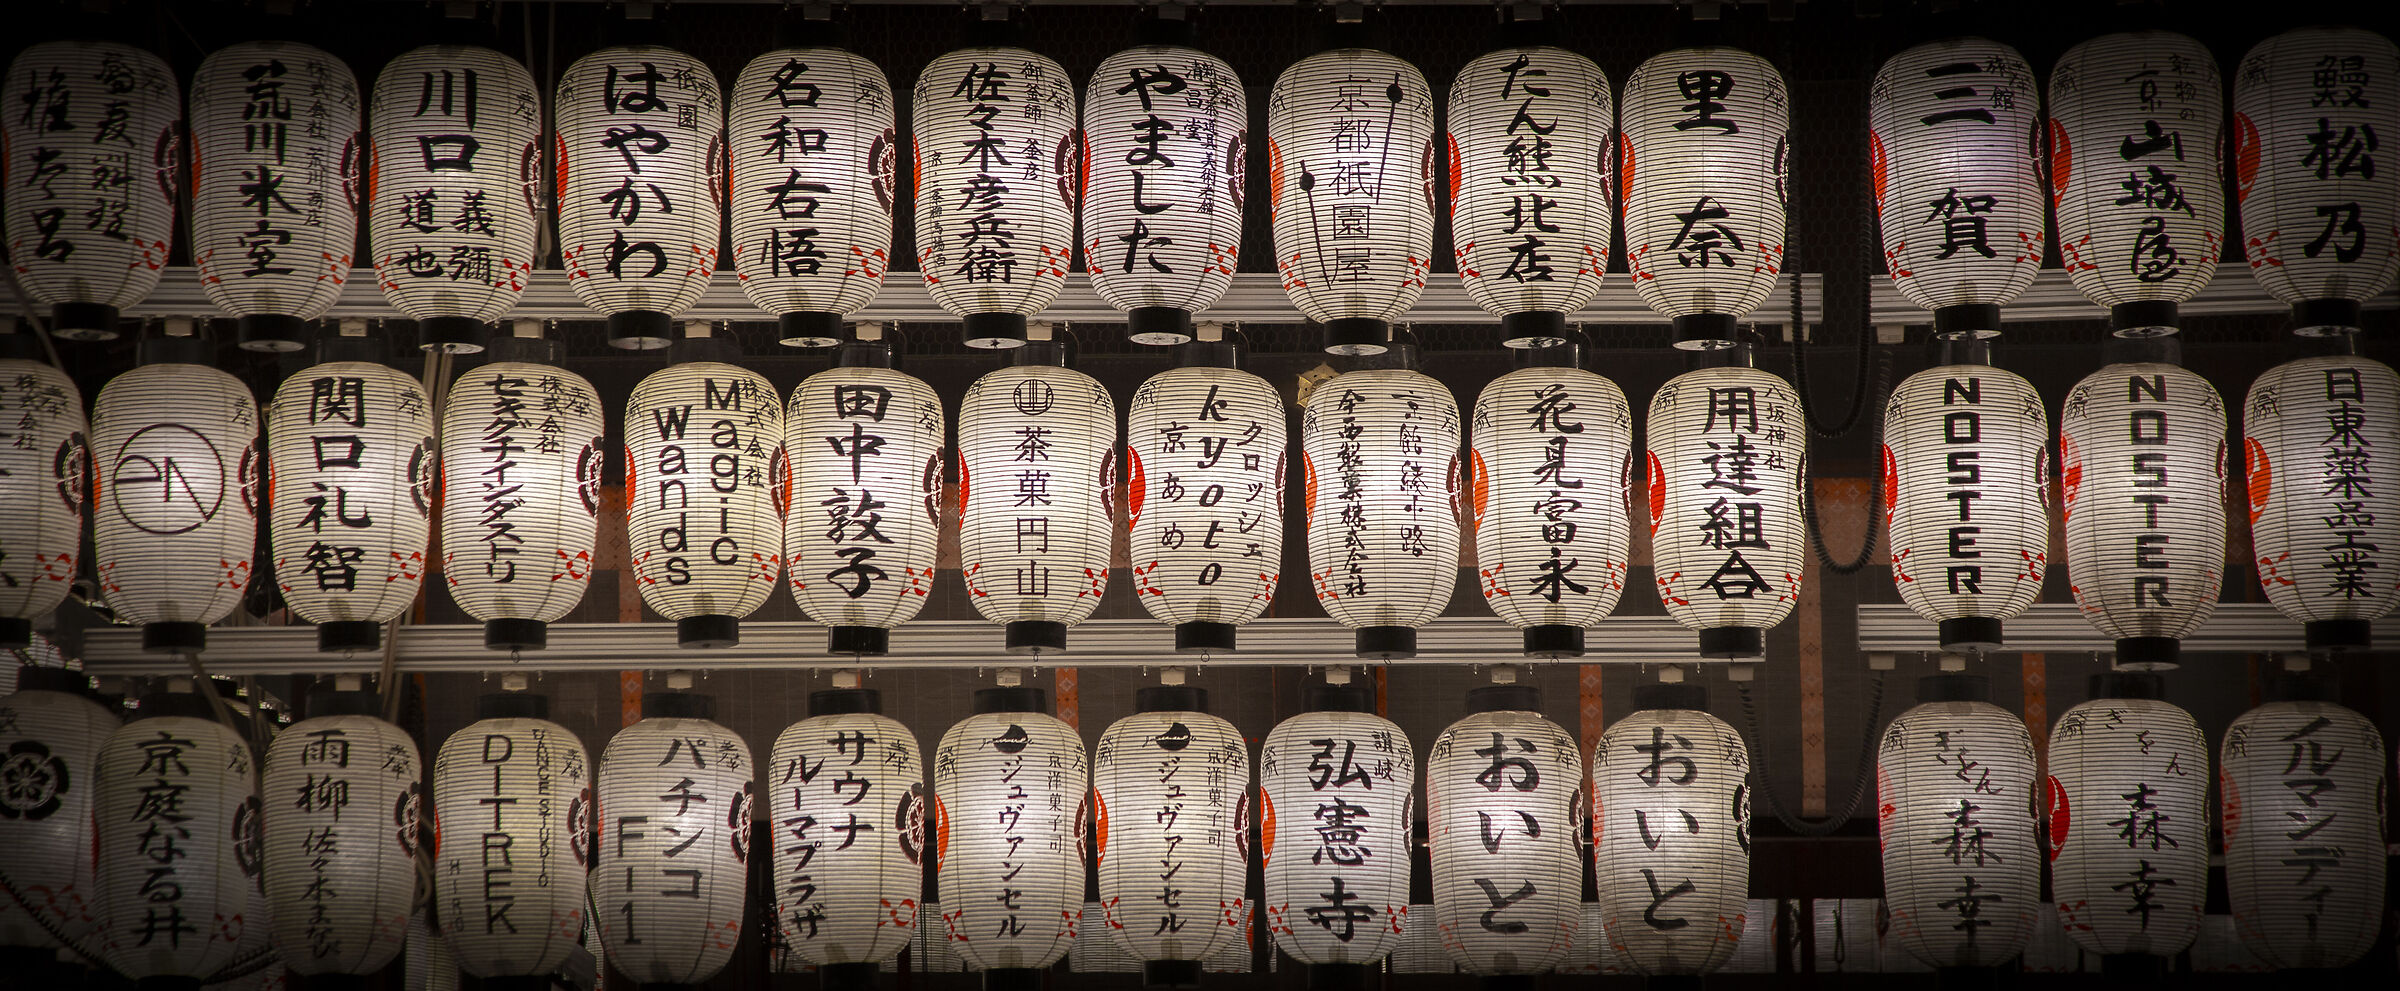 荒川氷室
株式会社 荒川商店
川口
義彌
道也
奉
祇園
はやかわ
名和右悟
奉
御釜師・釜彦
佐々木彦兵衛
やました
京都祇園屋
たん熊北店
里奈
奉
旅館
三賀
乾物の
京山城屋
鰻松乃
株式会社
奉
関口礼智
株式会社
セキグチインダストリ
奉
株式会社
Magic
Wands
田中敦子
奉
茶菓円山
クロッシェ
kyoto
京あめ
京飴綾小路
今西製菓株式会社
花見富永
八坂神社
用達組合
NOSTER
NOSTER
日東薬品工業
京庭なる井
奉
雨柳
佐々木まなび
奉
DANCE STUDIO
DITREK
HIRO
奉
パチンコ
F-1
奉
サウナ
ルーマプラザ
奉
京洋菓子司
ジュヴァンセル
京洋菓子司
ジュヴァンセル
讃岐
弘憲寺
おいと
奉
おいと
奉
ぎをん
森幸
ぎをん
森幸
ノルマンディー